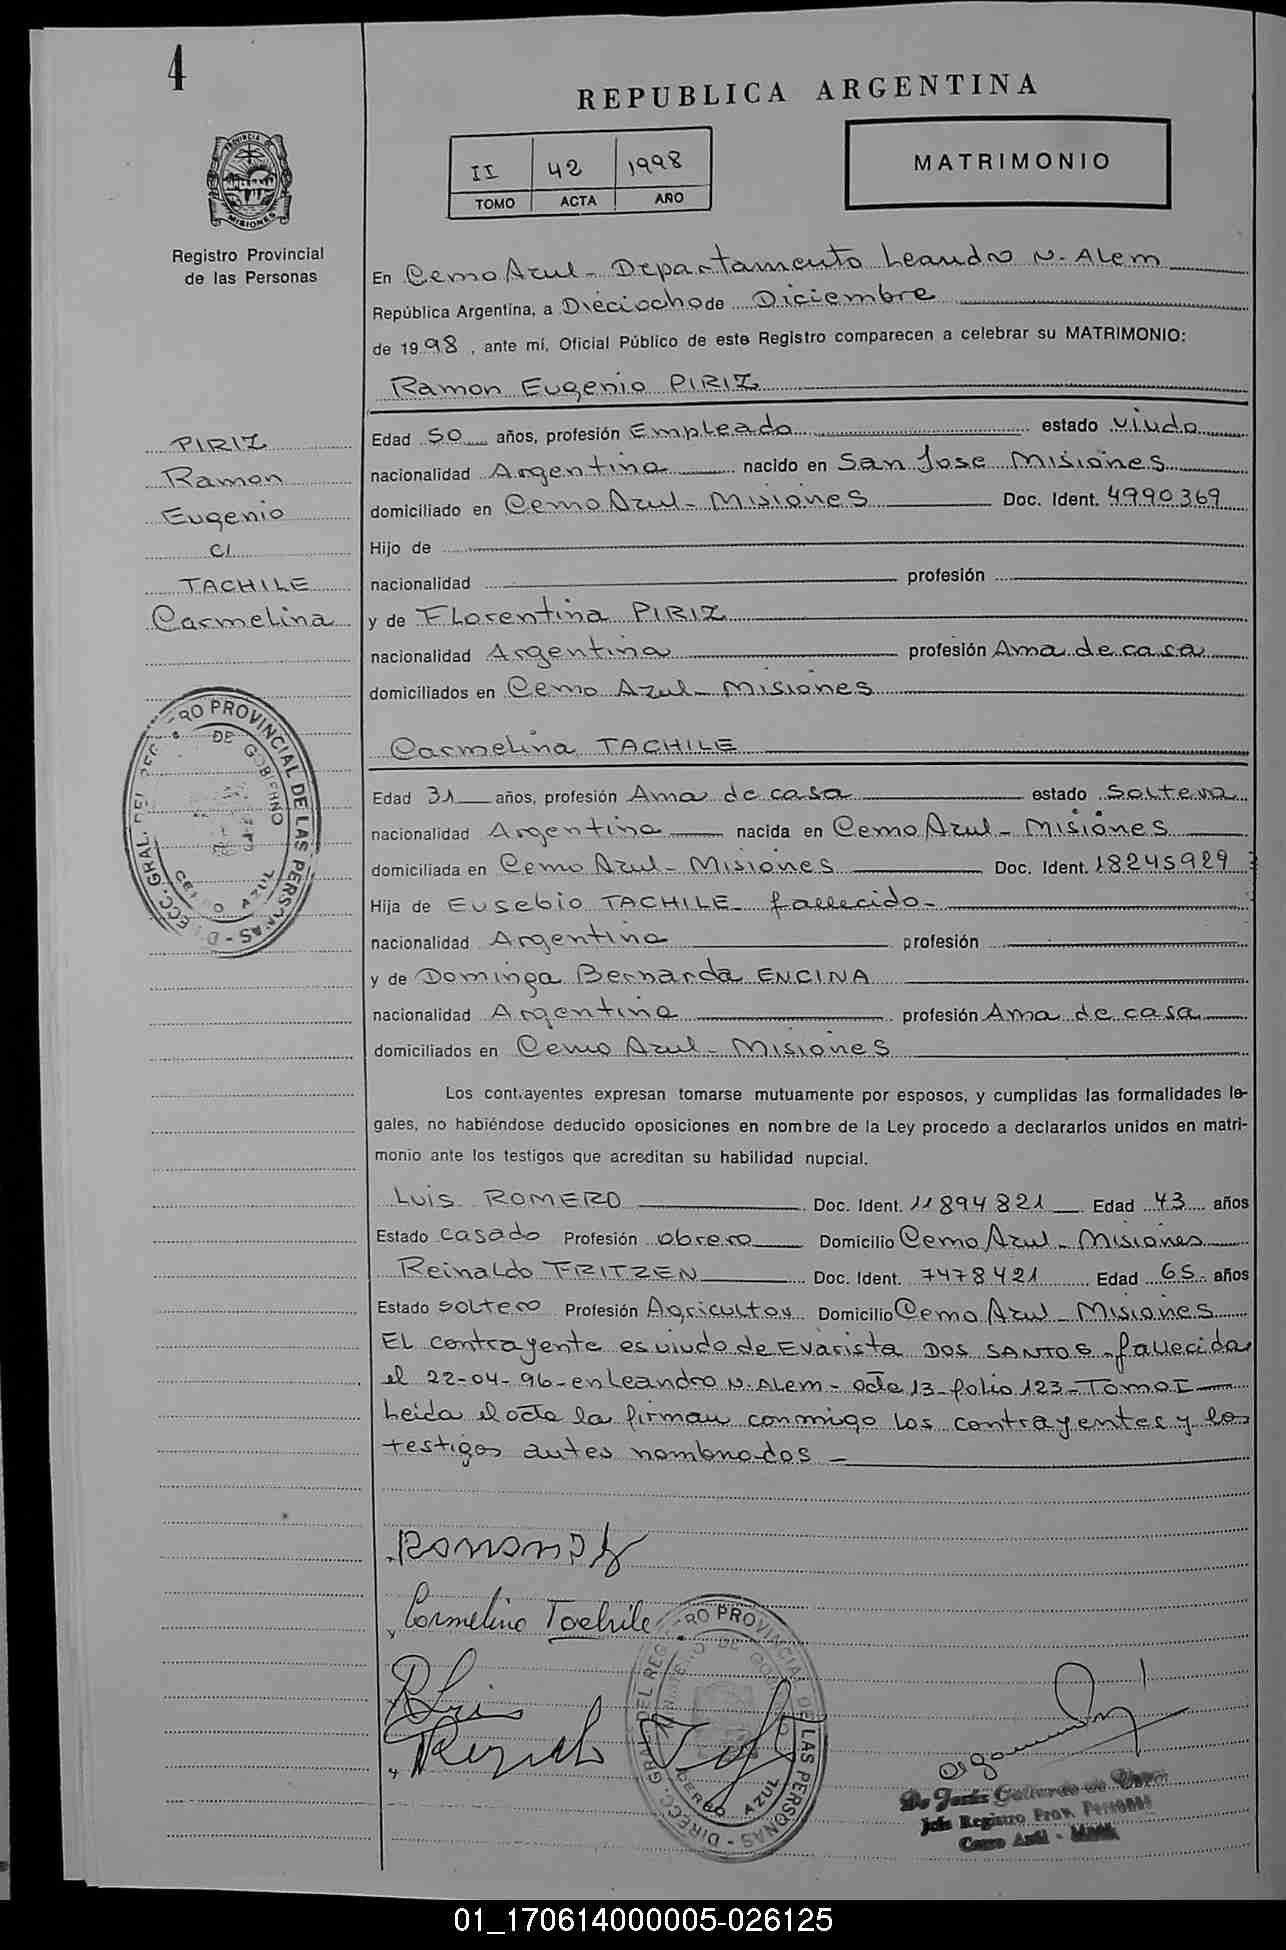 4
REPUBLICA ARGENTINA
II 42 1998
TOMO ACTA AÑO
MATRIMONIO
PROVINCIA
MISIONES
Registro Provincial
de las Personas
En Cerro Azul - Departamento Leandro N. Alem
República Argentina, a Dieciocho de Diciembre
de 1998, ante mí, Oficial Público de este Registro comparecen a celebrar su MATRIMONIO:
Ramon Eugenio PIRIZ
PIRIZ
Ramon
Eugenio
c/
TACHILE
Carmelina
Edad 50 años, profesión Empleado estado viudo
nacionalidad Argentina nacido en San Jose Misiones
domiciliado en Cerro Azul - Misiones Doc. Ident. 4990369
Hijo de
nacionalidad profesión
y de Florentina PIRIZ
nacionalidad Argentina profesión Ama de casa
domiciliados en Cerro Azul - Misiones
Carmelina TACHILE
Edad 31 años, profesión Ama de casa estado Soltera
nacionalidad Argentina nacida en Cerro Azul - Misiones
domiciliada en Cerro Azul - Misiones Doc. Ident. 18245929
Hija de Eusebio TACHILE - fallecido -
nacionalidad Argentino profesión
y de Dominga Bernarda ENCINA
nacionalidad Argentina profesión Ama de casa
domiciliados en Cerro Azul - Misiones
DIRECC. GRAL. DEL REGISTRO PROVINCIAL DE LAS PERSONAS
DE GOBIERNO
CERRO AZUL
Los contrayentes expresan tomarse mutuamente por esposos, y cumplidas las formalidades le-
gales, no habiéndose deducido oposiciones en nombre de la Ley procedo a declararlos unidos en matri-
monio ante los testigos que acreditan su habilidad nupcial.
Luis ROMERO Doc. Ident. 11894821 Edad 43 años
Estado casado Profesión obrero Domicilio Cerro Azul - Misiones
Reinaldo FRITZEN Doc. Ident. 7478421 Edad 65 años
Estado soltero Profesión Agricultor Domicilio Cerro Azul - Misiones
El contrayente es viudo de Evarista DOS SANTOS - fallecida
el 22-04-96 - en Leandro N. Alem - acta 13 - folio 123 - Tomo I
Leida el acta la firman conmigo los contrayentes y los
testigos antes nombrados -
Carmelina Tachile
DIRECC. GRAL. DEL REGISTRO PROVINCIAL DE LAS PERSONAS
MINISTERIO DE GOBIERNO
CERRO AZUL
Jefe Registro Prov. Personas
Cerro Azul -
01_170614000005-026125